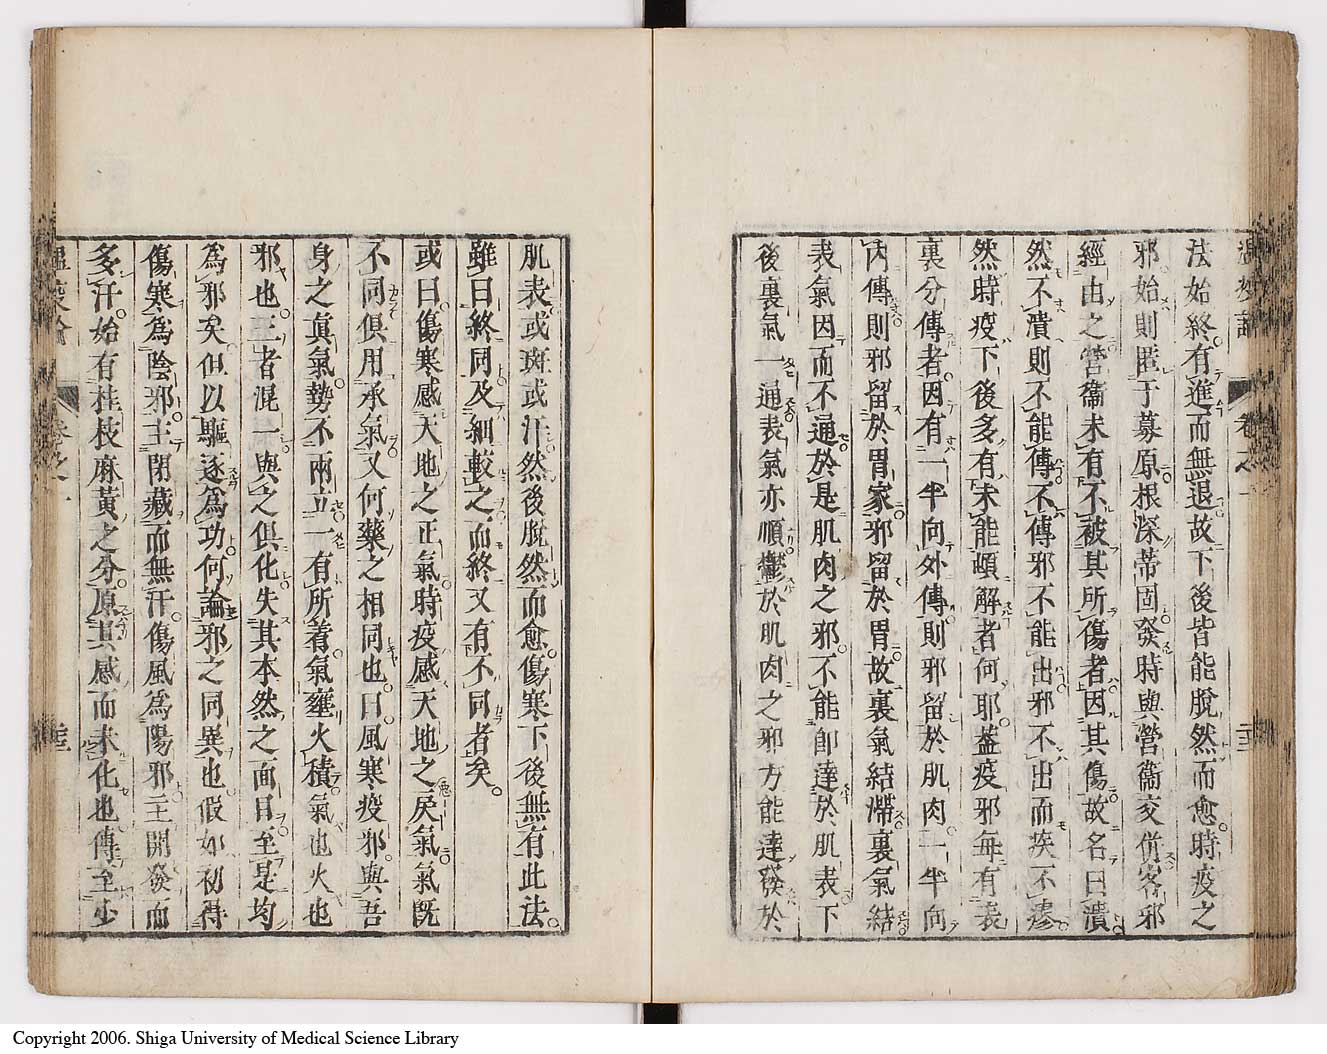 法始終有進而無退故下後皆能脫然而愈時疫之
邪始則匿于募原根深蒂固發時與營衞交併客邪
經由之營衞未有不被其所傷者因其傷故名曰潰
然不潰則不能傳不傳邪不能出邪不出而疾不瘳
然時疫下後多有未能頓解者何耶蓋疫邪每有表
裏分傳者因有一半向外傳則邪留於肌肉一半向
內傳則邪留於胃家邪留於胃故裏氣結滯裏氣結
表氣因而不通於是肌肉之邪不能卽達於肌表下
後裏氣一通表氣亦順鬱於肌肉之邪方能達發於
肌表或斑或汗然後脫然而愈傷寒下後無有此法
雖曰終同及細較之而終又有不同者矣
或曰傷寒感天地之正氣時疫感天地之戾氣氣旣
不同俱用承氣又何藥之相同也曰風寒疫邪與吾
身之眞氣勢不兩立一有所着氣壅火積氣也火也
邪也三者混一與之俱化失其本然之面目至是均
爲邪矣但以驅逐爲功何論邪之同異也假如初得
傷寒爲陰邪主閉藏而無汗傷風爲陽邪主開發而
多汗始有桂枝麻黃之分原其感而未化也傳至少
溫疫論 卷之一
Copyright 2006. Shiga University of Medical Science Library